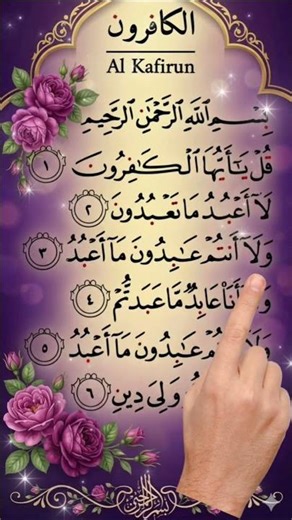 الكافرون
Al Kafirun
بِسْمِ ٱللَّهِ ٱلرَّحْمَٰنِ ٱلرَّحِيمِ
قُلْ يَٰٓأَيُّهَا ٱلْكَٰفِرُونَ ١
لَآ أَعْبُدُ مَا تَعْبُدُونَ ٢
وَلَآ أَنتُمْ عَٰبِدُونَ مَآ أَعْبُدُ ٣
أَنَا۠ عَابِدٌ مَّا عَبَدتُّمْ ٤
عَٰبِدُونَ مَآ أَعْبُدُ ٥
وَلِىَ دِينِ ٦